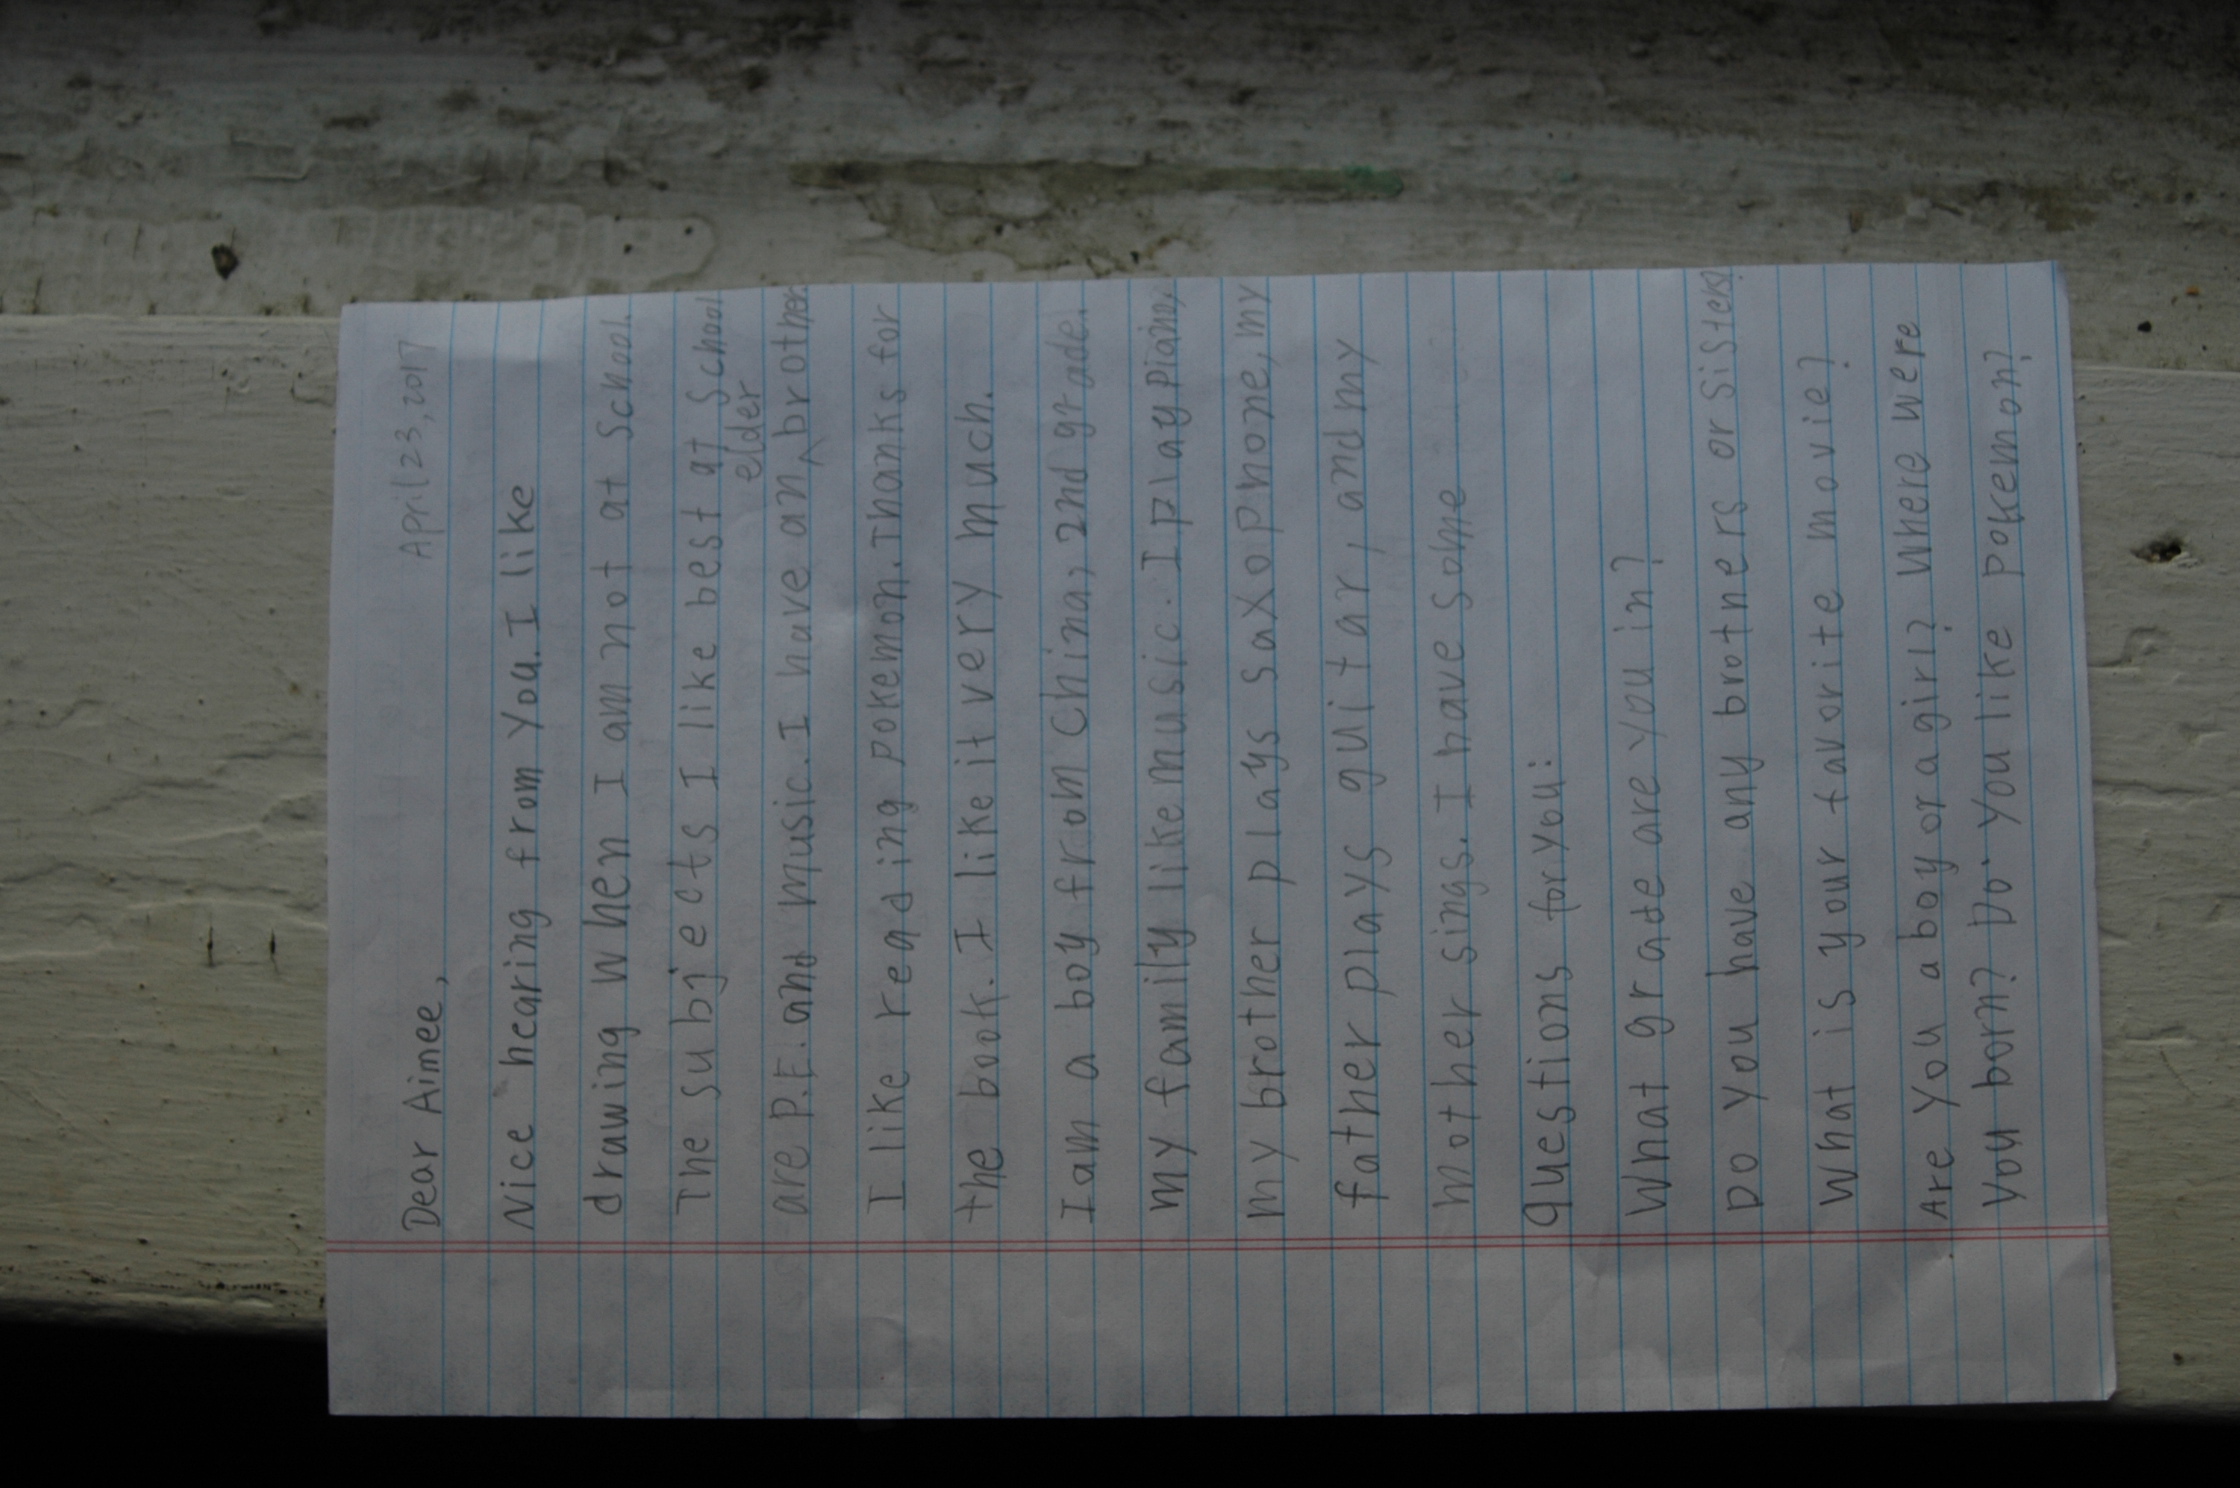 April 23, 2017
Dear Aimee,
Nice hearing from you. I like
drawing when I am not at school.
The subjects I like best at school
are P.E. and music. I have an elder brother.
I like reading pokemon. Thanks for
the book. I like it very much.
I am a boy from China, 2nd grade.
My family like music. I play piano,
my brother plays saxophone, my
father plays guitar, and my
mother sings. I have some
questions for you:
What grade are you in?
Do you have any brothers or sisters?
What is your favorite movie?
Are you a boy or a girl? Where were
you born? Do you like pokemon?